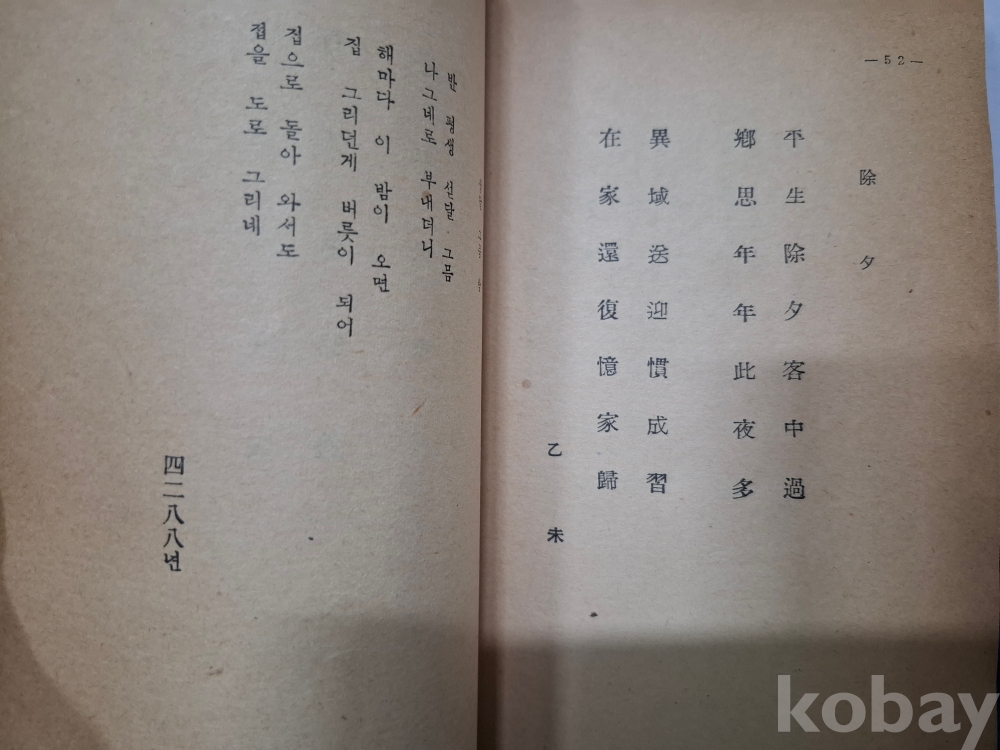 —52—
除夕
平生除夕客中過
鄕思年年此夜多
異域送迎慣成習
在家還復憶家歸
乙未
반 평생 섣달 그믐
나그네로 부내더니
해마다 이 밤이 오면
집 그리던게 버릇이 되어
집으로 돌아 와서도
접을 도로 그리네
四二八八년
kobay